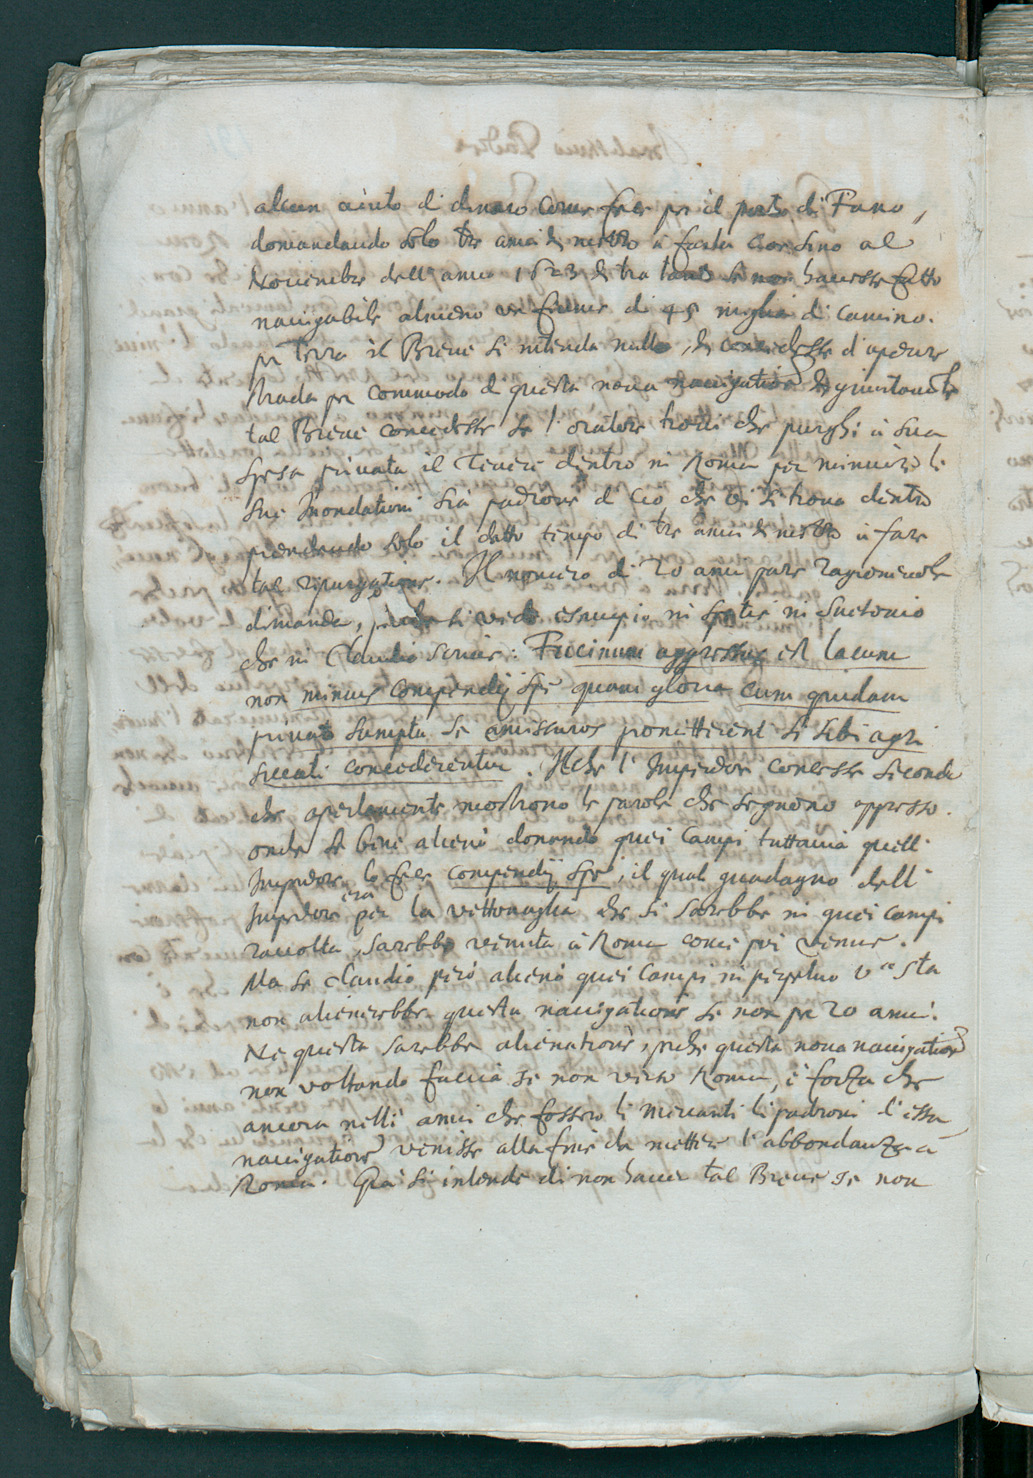 alcun aiuto di denaro come fece per il porto di Fano,
domandando solo tre anni di metter a farlo cioe sino al
Novembre dell'anno 1623 & tra tanto se non havesse fatto
navigabile almeno un fiume di 45 miglia di camino.
per Terra il Breve si intenda nullo, & concedesse d'aprire
strada per commodo di questa nova navigatione & giuntamente
tal Breve concedesse se l'oratore trovi che purghi a sua
spesa privata il Tevere dentro in Roma per minuire le
sue Inondationi sia padrone di cio che vi si trova dentro
prendendo solo il detto tempo di tre anni di metter a fare
tal ripurgatione. Il numero di 20 anni pare ragionevole
dimanda, perche si vede esempio in Suetonio
che in Claudio scrive: Fucinum aggressus est lacum
non minus compendij spe quam gloria cum quidam
privato sumptu se emissuros promitterent si sibi agri
siccati concederentur. Il che l'Imperador concesse secondo
che apertamente mostrono le parole che seguono appresso.
onde se bene alienò donando quei campi tuttavia quell'
Imperadore lo fece compendij spe, il qual guadagno dell'
Imperador era per la vettovaglia che si sarebbe in quei campi
raccolta, sarebbe venuta à Roma come poi venne.
Ma se Claudio però alienò quei campi in perpetuo V.ra S.ta
non alienerebbe questa navigatione se non per 20 anni.
Ne questa sarebbe alienatione, perche questa nova navigatione
non voltando faccia se non verso Roma, è forza che
ancora nelli anni che fossero li Mercanti li padroni d'essa
navigatione venisse alla fine da metter l'abbondanza à
Roma. Già si intende di non haver tal Breve se non